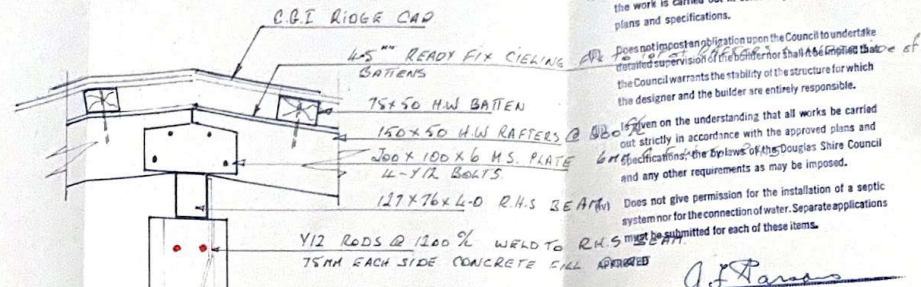 C.G.I RIDGE CAP
45" READY FIX CIELING FIX TO
BATTENS
75 x 50 H.W BATTEN
150 x 50 H.W RAFTERS @
200 x 100 x 6 M.S. PLATE
4-Y12 BOLTS
127 x 76 x 4.0 R.H.S BEAM
Y12 RODS @ 1200 % WELD TO R.H.S BEAM
75MM EACH SIDE CONCRETE FILL
the work is carried out in
plans and specifications.
Does not impost an obligation upon the Council to undertake
detailed supervision of the builder nor shall it be implied that
the Council warrants the stability of the structure for which
the designer and the builder are entirely responsible.
Is given on the understanding that all works be carried
out strictly in accordance with the approved plans and
specifications, the bylaws of the Douglas Shire Council
and any other requirements as may be imposed.
(iv) Does not give permission for the installation of a septic
system nor for the connection of water. Separate applications
must be submitted for each of these items.